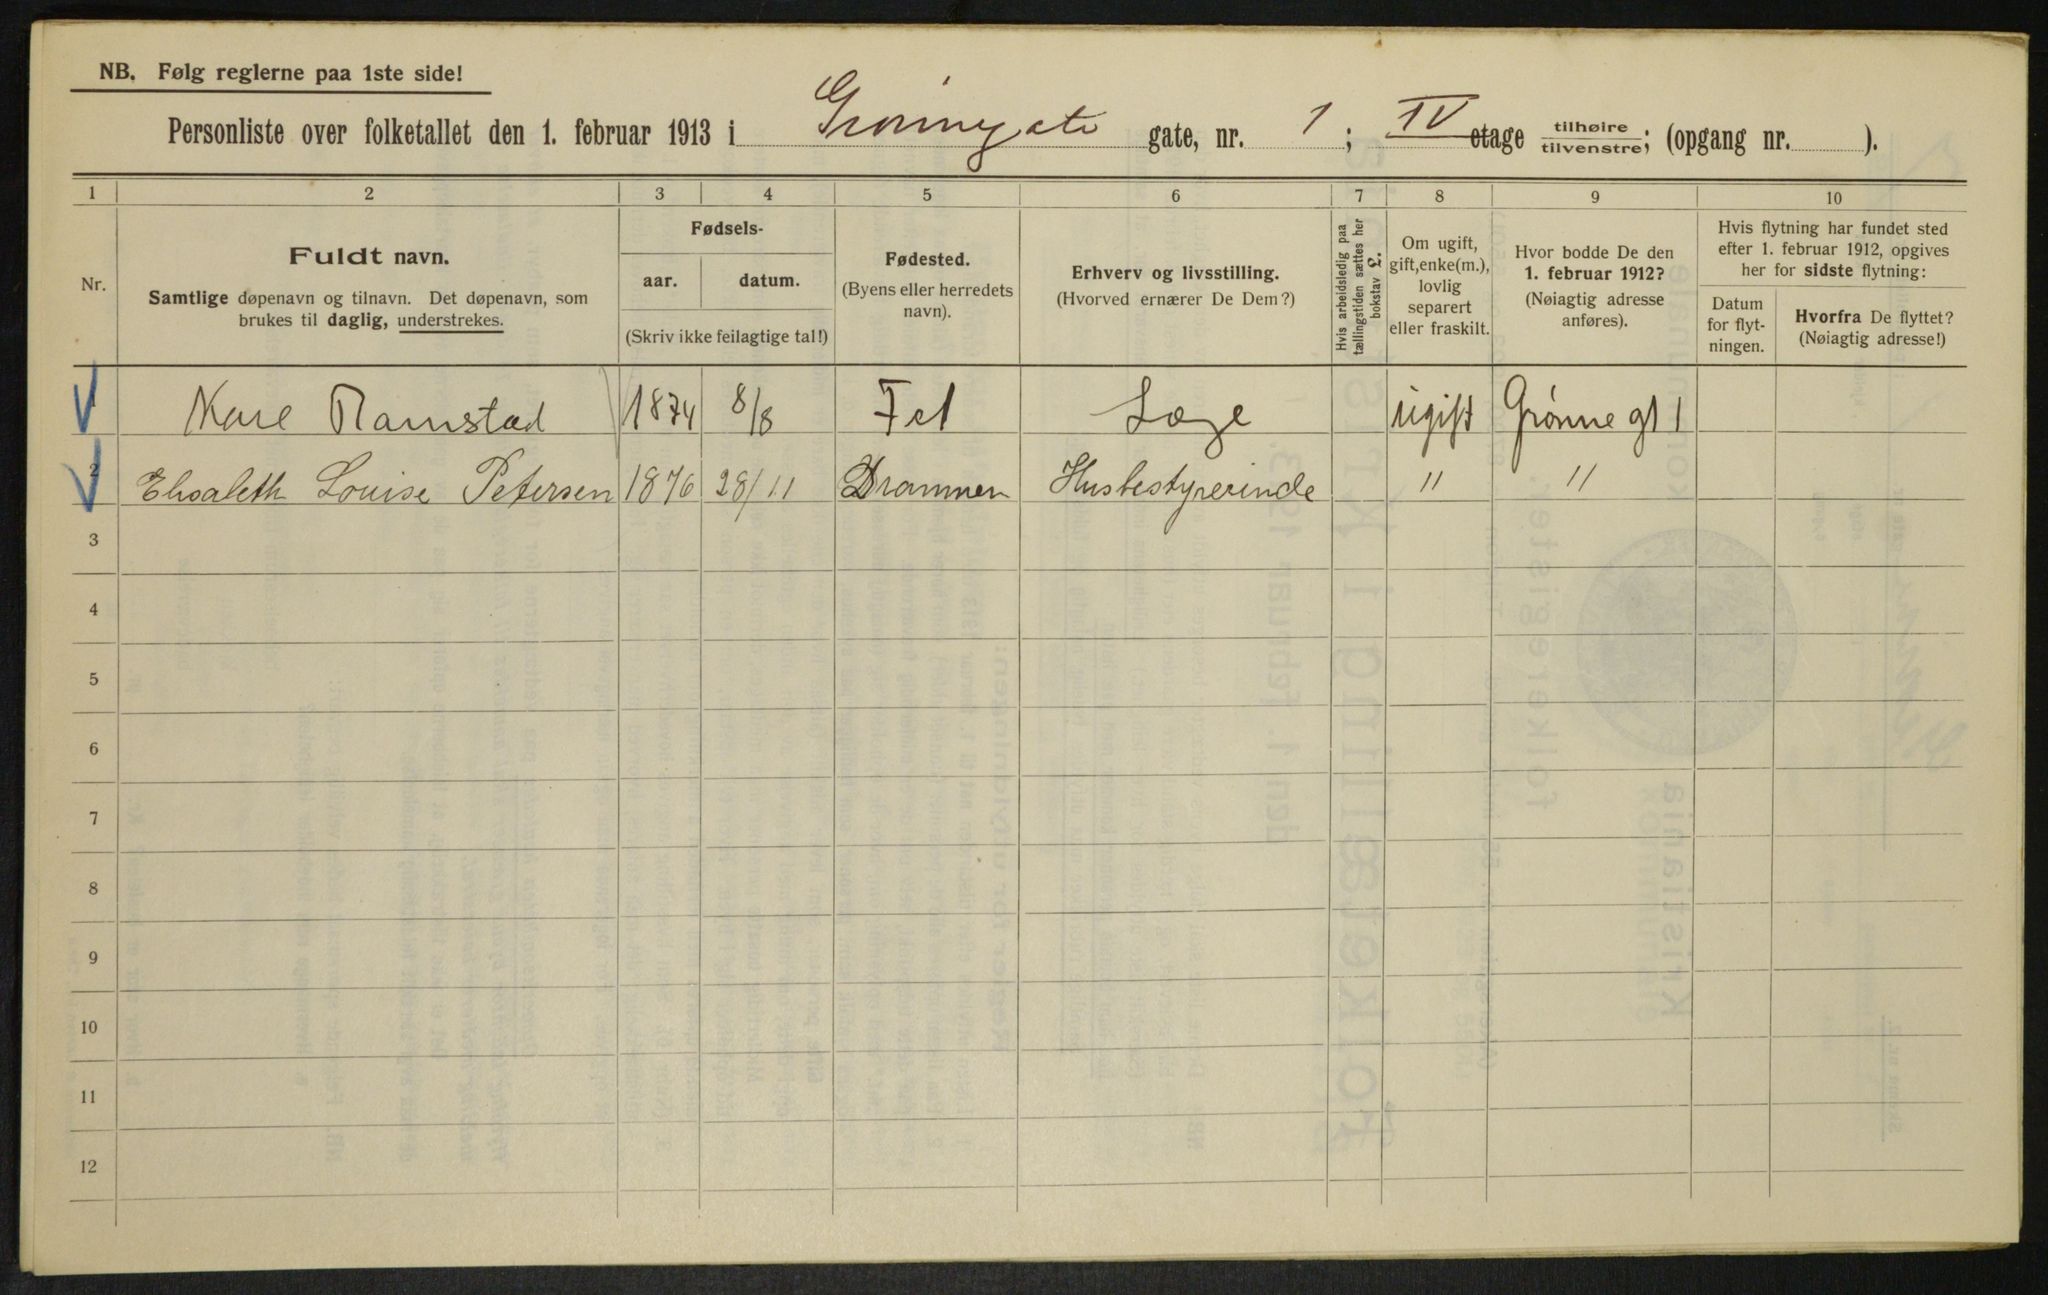 NB. Følg reglerne paa 1ste side!
Personliste over folketallet den 1. februar 1913 i Grønnegate gate, nr. 1; IV etage tilhøire tilvenstre; (opgang nr. ).
1 2 3 4 5 6 7 8 9 10
Nr.
Fuldt navn.
Samtlige døpenavn og tilnavn. Det døpenavn, som
brukes til daglig, understrekes.
Fødsels-
aar. datum.
(Skriv ikke feilagtige tal!)
Fødested.
(Byens eller herredets
navn).
Erhverv og livsstilling.
(Hvorved ernærer De Dem?)
Hvis arbeidsledig paa
tællingstiden sættes her
bokstav L.
Om ugift,
gift, enke(m.),
lovlig
separert
eller fraskilt.
Hvor bodde De den
1. februar 1912?
(Nøiagtig adresse
anføres).
Hvis flytning har fundet sted
efter 1. februar 1912, opgives
her for sidste flytning:
Datum
for flyt-
ningen.
Hvorfra De flyttet?
(Nøiagtig adresse!)
1 Ramstad 1874 8/8 Fet Læge ugift Grønne gt 1
2 Elisabeth Louise Petersen 1876 28/11 Drammen Husbestyrerinde " "
3
4
5
6
7
8
9
10
11
12